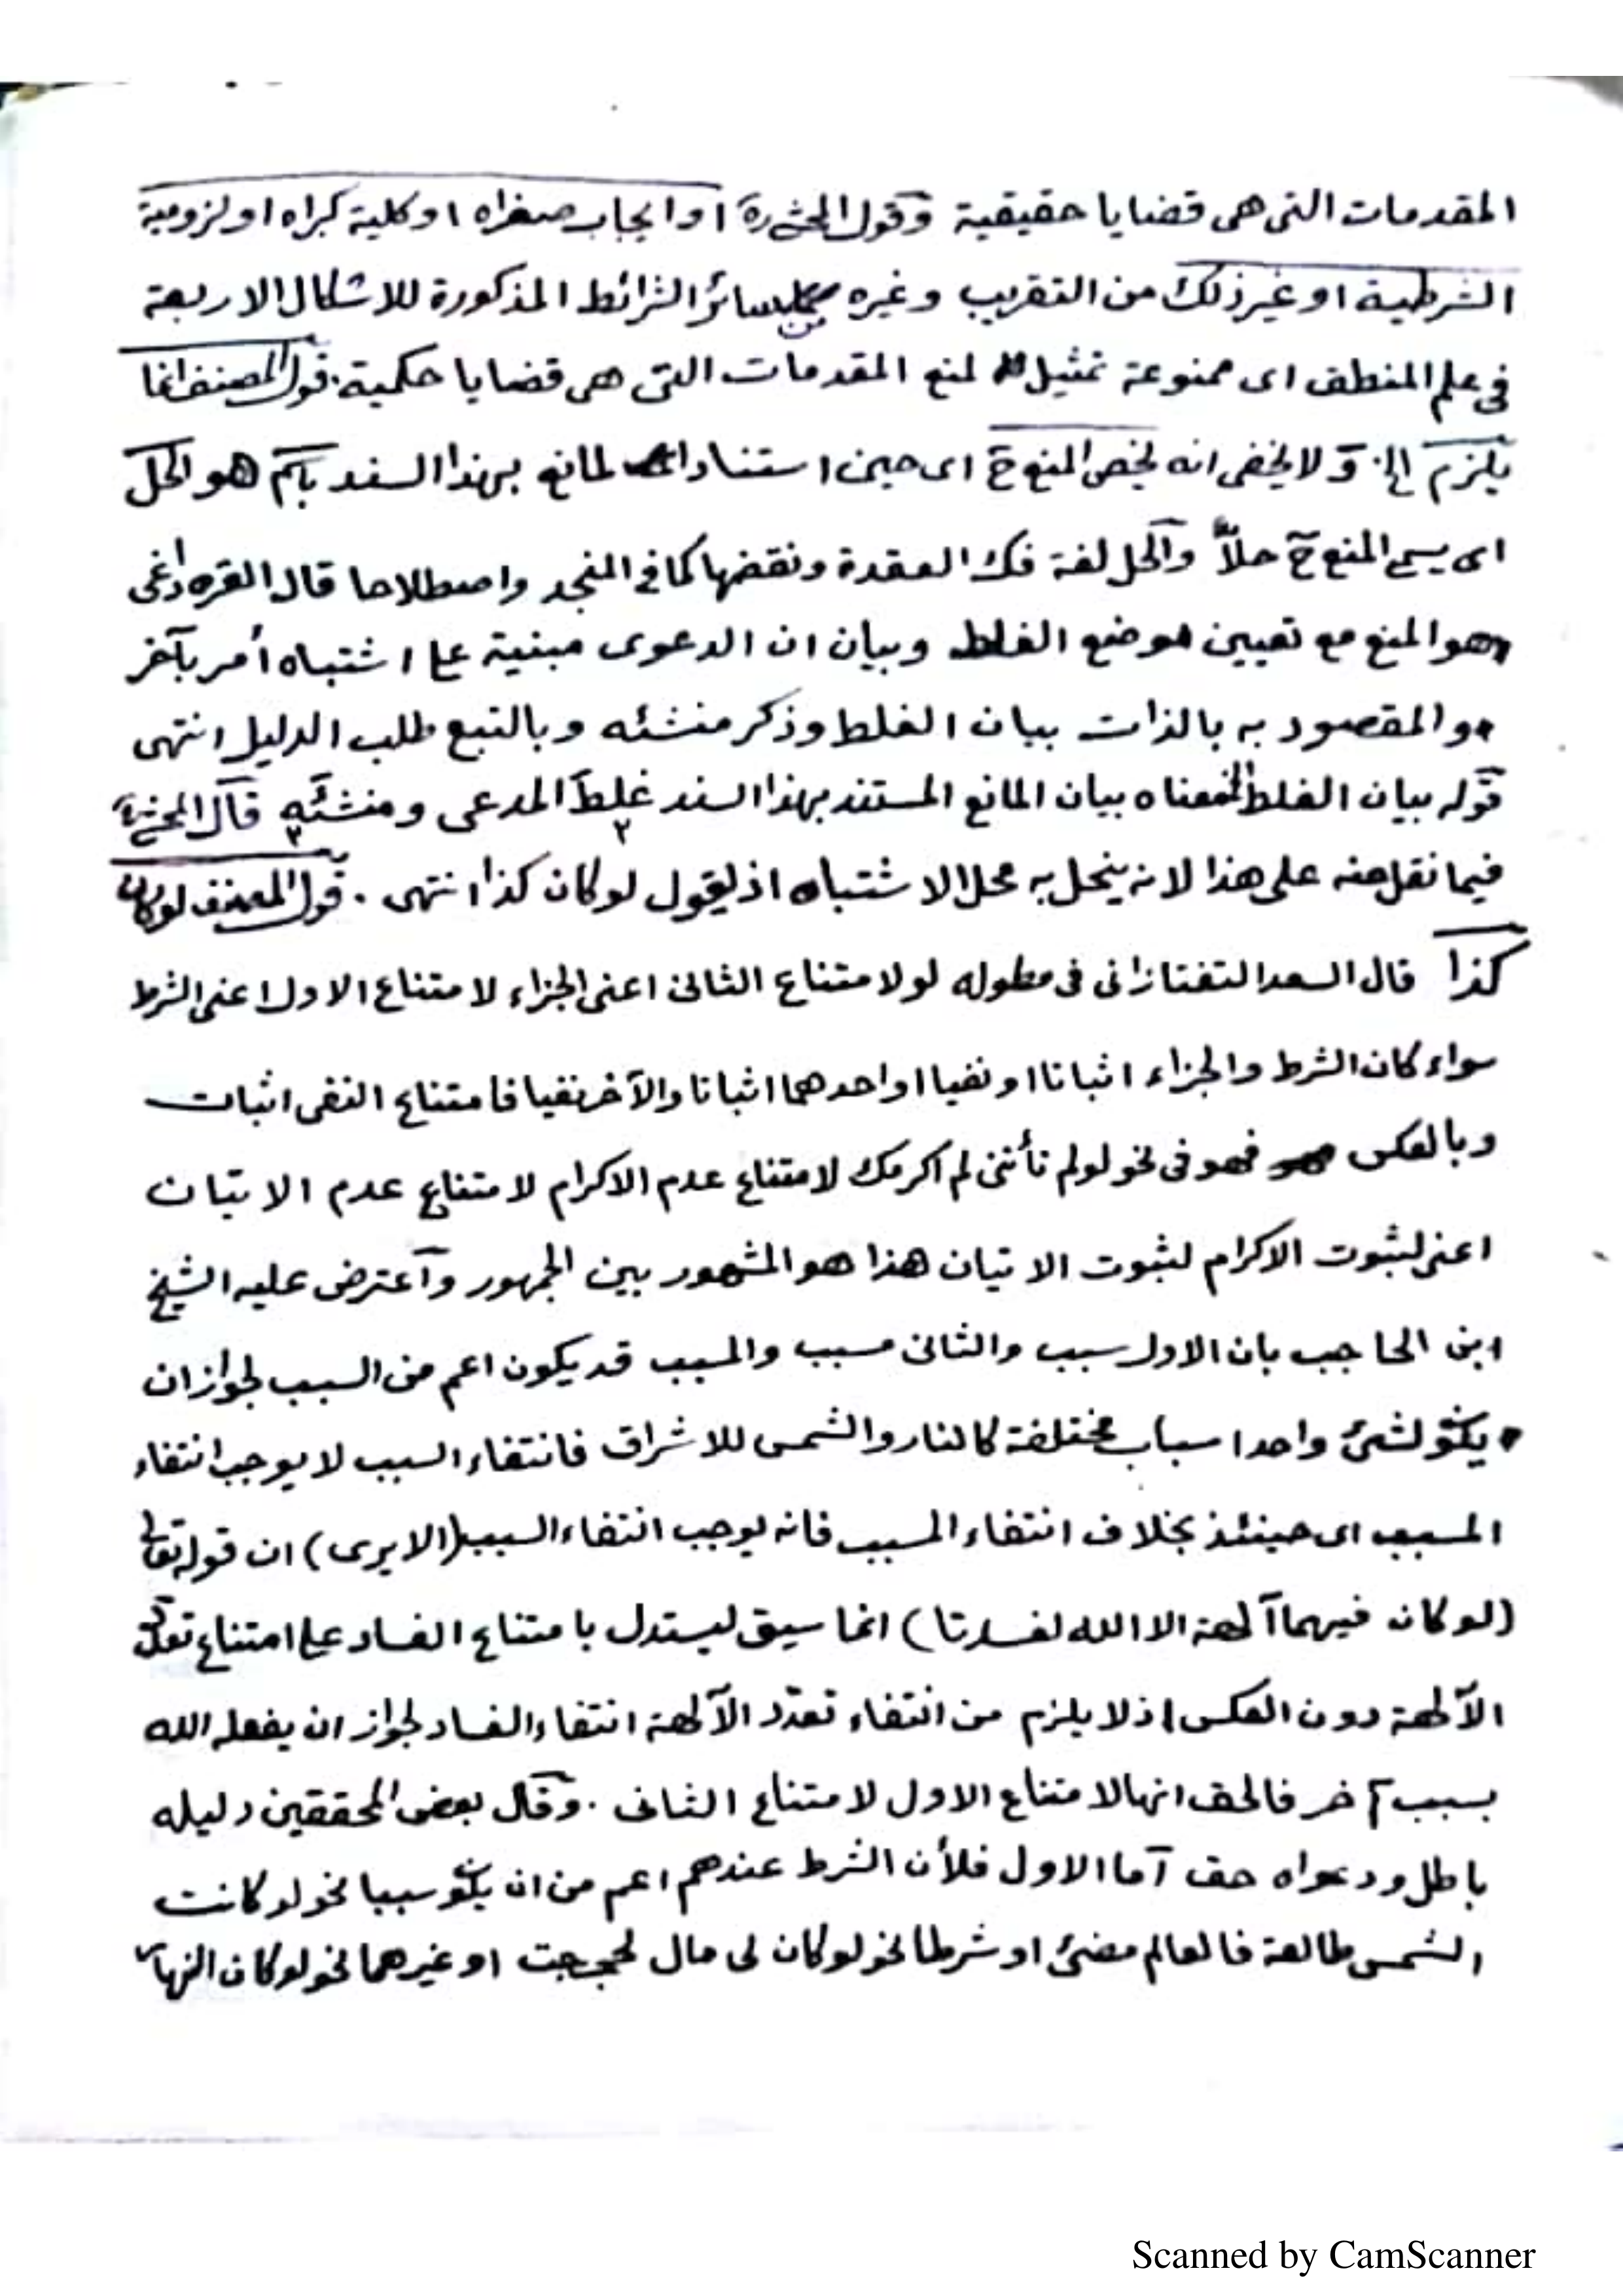 المقدمات التى هى قضايا حقيقية وقول المحشى ره او ايجاب صغراه او كلية كبراه او لزومية
الشرطية او غير ذلك من التقريب وغيره من سائر الشرائط المذكورة للاشكال الاربعة
فى علم المنطق اى ممنوعة تمثيل لمنع المقدمات التى هى قضايا حكمية. قول المصنف انما
يلزم الخ. ولا يخفى انه يخص المنع ح اى حين استناد المانع بهذا السند باسم هو الحل
اى يسمى المنع ح حلاًّ والحل لغة فك العقدة ونقضها كما فى المنجد واصطلاحا قال القره داغى
هو المنع مع تعيين موضع الغلط وبيان ان الدعوى مبنية على اشتباه أمر بآخر
والمقصود به بالذات بيان الغلط وذكر منشئه وبالتبع طلب الدليل انتهى
قوله بيان الغلط الخ معناه بيان المانع المستند بهذا السند غلط المدعى ومنشئه قال المحشى ره
فيما نقل عنه على هذا لانه ينحل به محل الاشتباه اذ يقول لو كان كذا انتهى . قول المصنف لو كان
كذا قال السعد التفتازانى فى مطوله لو لامتناع الثانى اعنى الجزاء لامتناع الاول اعنى الشرط
سواء كان الشرط والجزاء اثباتا او نفيا او احدهما اثباتا والآخر نفيا فامتناع النفى اثبات
وبالعكس فهو فى نحو لو لم تأتنى لم اكرمك لامتناع عدم الاكرام لامتناع عدم الاتيان
اعنى لثبوت الاكرام لثبوت الاتيان هذا هو المشهور بين الجمهور وآعترض عليه الشيخ
ابن الحاجب بان الاول سبب والثانى مسبب والمسبب قد يكون اعم من السبب لجواز ان
يكون لشئ واحد اسباب مختلفة كالنار والشمس للاشراق فانتفاء السبب لا يوجب انتفاء
المسبب اى حينئذ بخلاف انتفاء المسبب فانه يوجب انتفاء السبب (الا يرى) ان قوله تعالى
(لو كان فيهما آلهة الا الله لفسدتا) انما سيق ليستدل بامتناع الفساد على امتناع تعدد
الآلهة دون العكس اذ لا يلزم من انتفاء تعدّد الآلهة انتفاء الفساد لجواز ان يفعله الله
بسبب آخر فالحق انها لامتناع الاول لامتناع الثانى . وقال بعض المحققين دليله
باطل ودعواه حق آما الاول فلأن الشرط عندهم اعم من ان يكون سببا نحو لو كانت
الشمس طالعة فالعالم مضئ او شرطا نحو لو كان لى مال لحججت او غيرهما نحو لو كان النهار
Scanned by CamScanner